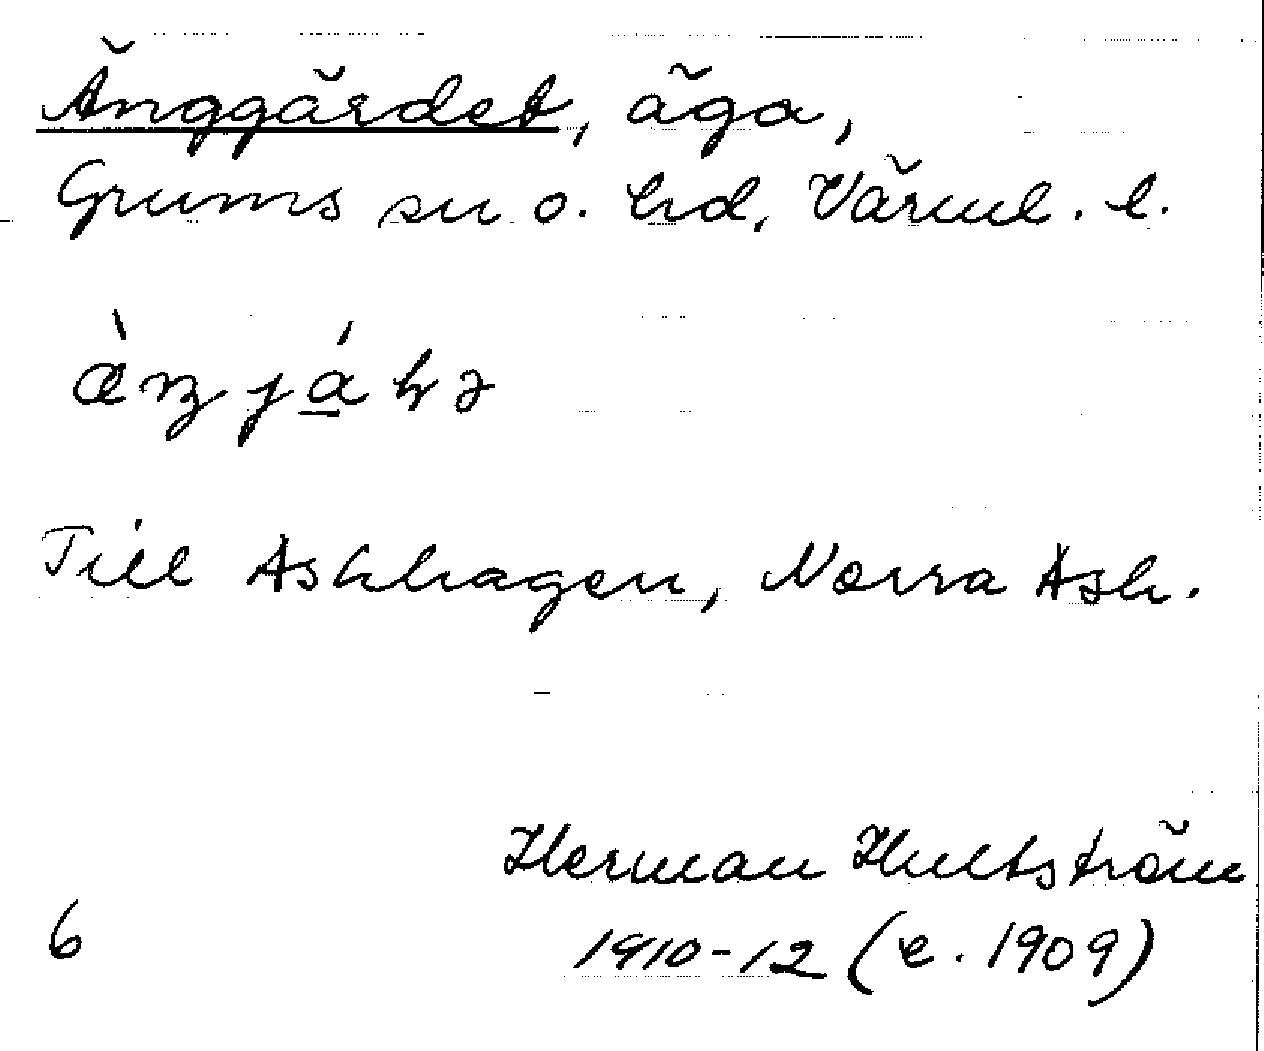 Änggärdet, äga,
Grums sn o. hd, Värml. l.
Till Askhagen, Norra Ask.
Herman Hultström
6 1910-12 (e. 1909)